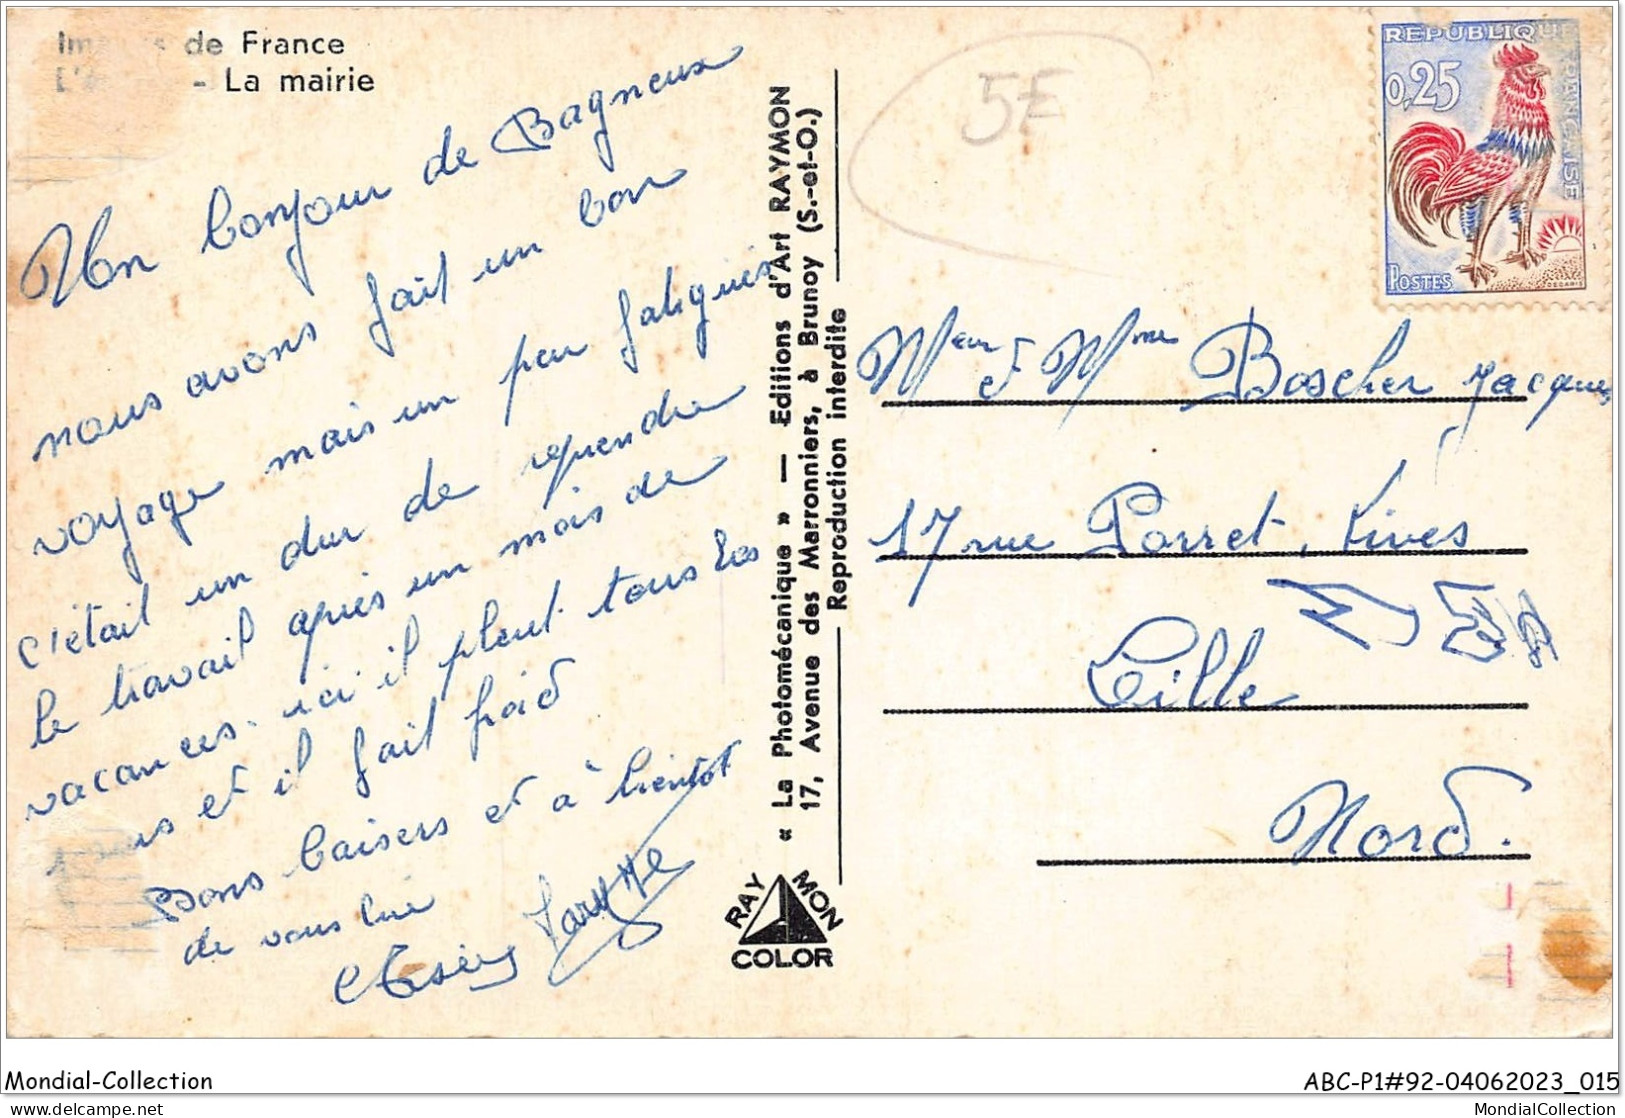 de France
- La mairie
Un bonjour de Bagneux
nous avons fait un bon
voyage mais un peu fatigués
c'était un dur de reprendre
le travail après un mois de
vacances. ici il pleut tous les
et il fait froid
Bons baisers et à bientôt
de vous lire
« La Photomécanique » — Editions d'Art RAYMON
17, Avenue des Marronniers, à Brunoy (S.-et-O.)
Reproduction interdite
RAYMON
COLOR
5F
REPUBLIQUE FRANCAISE
0,25
POSTES
DECARIS
Meur et Mme Boscher Jacques
17 rue Porret, Fives
Lille
Nord.
Mondial-Collection
ABC-P1#92-04062023_015
delcampe.net
MondialCollection